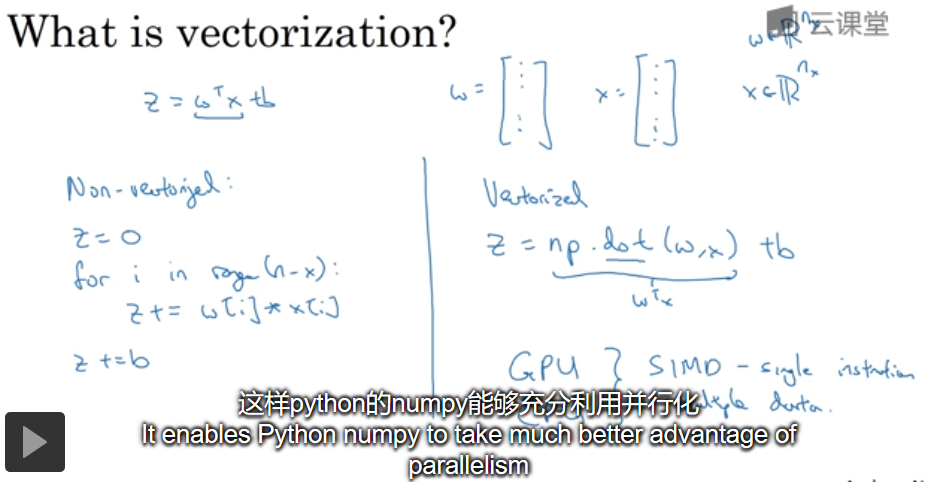 What is vectorization?
云课堂
z = wᵀx + b
w = [⋮] x = [⋮]
w ∈ ℝⁿˣ
x ∈ ℝⁿˣ
Non-vectorized:
z = 0
for i in range(n-x):
z += w[i] * x[i]
z += b
Vectorized
z = np.dot(w,x) + b
wᵀx
GPU } SIMD - single instruction
data.
这样python的numpy能够充分利用并行化
It enables Python numpy to take much better advantage of
parallelism